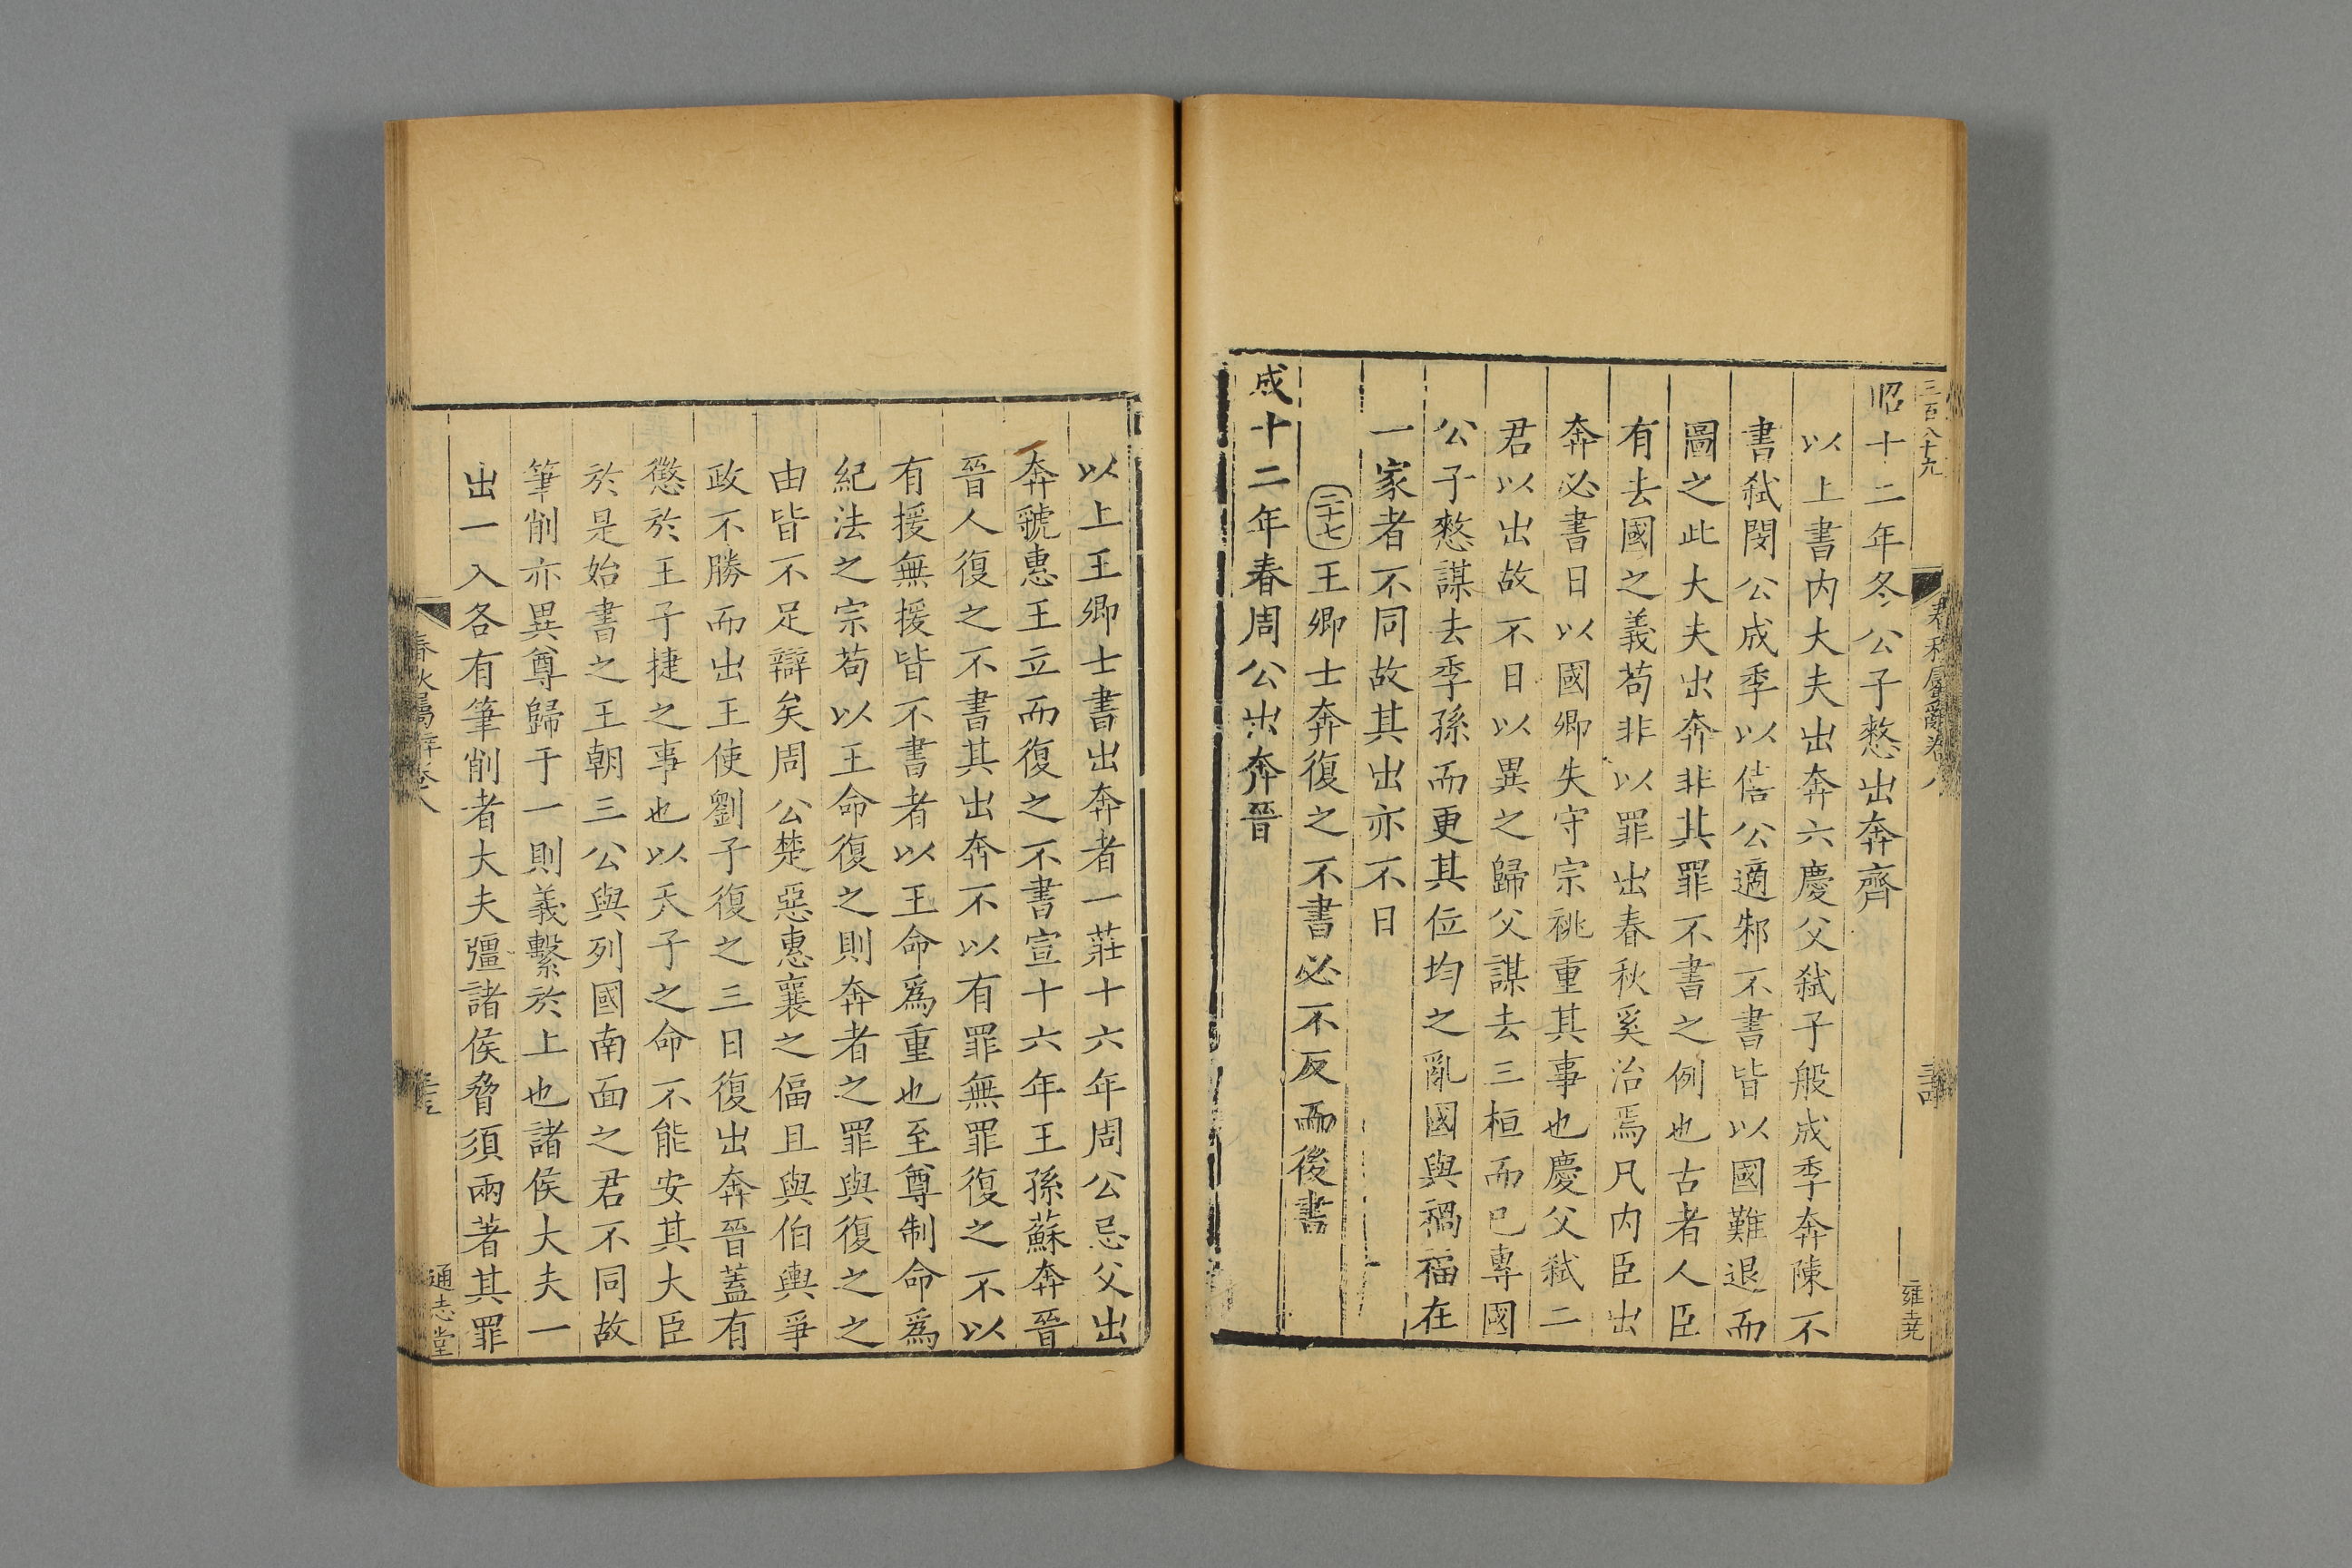 三百八十九
春秋屬辭卷八
雍堯
昭十二年冬公子憖出奔齊
以上書内大夫出奔六慶父弑子般成季奔陳不
書弑閔公成季以僖公適邾不書皆以國難退而
圖之此大夫出奔非其罪不書之例也古者人臣
有去國之義苟非以罪出春秋奚治焉凡内臣出
奔必書日以國卿失守宗祧重其事也慶父弑二
君以出故不日以異之歸父謀去三桓而已專國
公子憖謀去季孫而更其位均之亂國與禍福在
一家者不同故其出亦不日
二十七王卿士奔復之不書必不反而後書
成十二年春周公出奔晉
以上王卿士書出奔者一莊十六年周公忌父出
奔虢惠王立而復之不書宣十六年王孫蘇奔晉
晉人復之不書其出奔不以有罪無罪復之不以
有援無援皆不書者以王命爲重也至尊制命爲
紀法之宗苟以王命復之則奔者之罪與復之之
由皆不足辯矣周公楚惡惠襄之偪且與伯輿爭
政不勝而出王使劉子復之三日復出奔晉蓋有
懲於王子捷之事也以天子之命不能安其大臣
於是始書之王朝三公與列國南面之君不同故
筆削亦異尊歸于一則義繫於上也諸侯大夫一
出一入各有筆削者大夫彊諸侯脅須兩著其罪
春秋屬辭卷八
通志堂